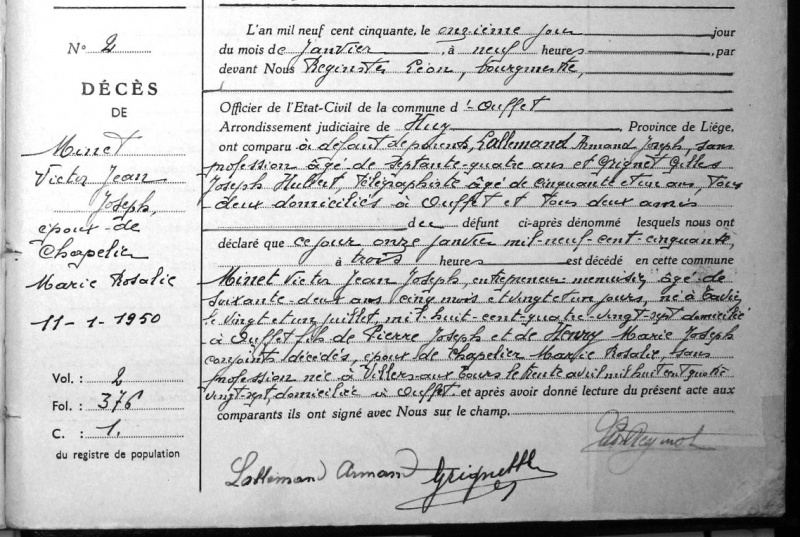 N° 2
DÉCÈS
DE
Minet
Victor Jean
Joseph,
époux de
Chapelier
Marie Rosalie
11-1-1950
Vol. : 2
Fol. : 376
C. : 1.
du registre de population
L'an mil neuf cent cinquante, le onzième jour jour
du mois de Janvier, à neuf heures, par
devant Nous Reginster Léon, bourgmestre,
Officier de l'Etat-Civil de la commune d'Ouffet
Arrondissement judiciaire de Huy, Province de Liége,
ont comparu à défaut de parents, Lallemand Armand Joseph, sans
profession âgé de septante-quatre ans et Grignet Gilles
Joseph Hubert, télégraphiste âgé de cinquante et un ans, tous
deux domiciliés à Ouffet et tous deux amis
du défunt ci-après dénommé lesquels nous ont
déclaré que ce jour onze janvier mil-neuf-cent-cinquante,
à trois heures est décédé en cette commune
Minet Victor Jean Joseph, entrepreneur-menuisier, âgé de
soixante-deux ans cinq mois et vingt et un jours, né à Tavier
le vingt et un juillet, mil-huit-cent-quatre-vingt-sept domicilié
à Ouffet fils de Pierre Joseph et de Henry Marie Joseph
conjoints décédés, époux de Chapelier Marie Rosalie, sans
profession née à Villers-aux-Tours le trente avril mil huit cent quatre-
vingt-sept, domiciliée à Ouffet. et après avoir donné lecture du présent acte aux
comparants ils ont signé avec Nous sur le champ.
Lallemand Armand